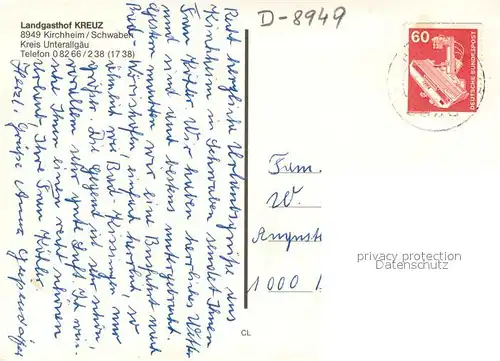 Landgasthof KREUZ
8949 Kirchheim / Schwaben
Kreis Unterallgäu
Telefon 0 82 66 / 2 38 (17 38)
D-8949
60
DEUTSCHE BUNDESPOST
Recht herzliche Urlaubsgrüße aus
Kirchheim in Schwaben sendet Ihnen
Frau Köhler. Wir haben herrliches Wetter
und sind bestens untergebracht.
Gestern machten wir eine Busfahrt nach
Bad-Wörishofen, einfach herrlich so
ähnlich wie Bad-Kissingen, nur
größer. Die Gegend ist sehr schön,
sehr gute Luft. Ich
Ihnen einen recht schönen
Urlaub, Ihre Frau Köhler
Herzl. Grüße Anna
Fam.
W.
Augustr
1000 1
CL
privacy protection
Datenschutz